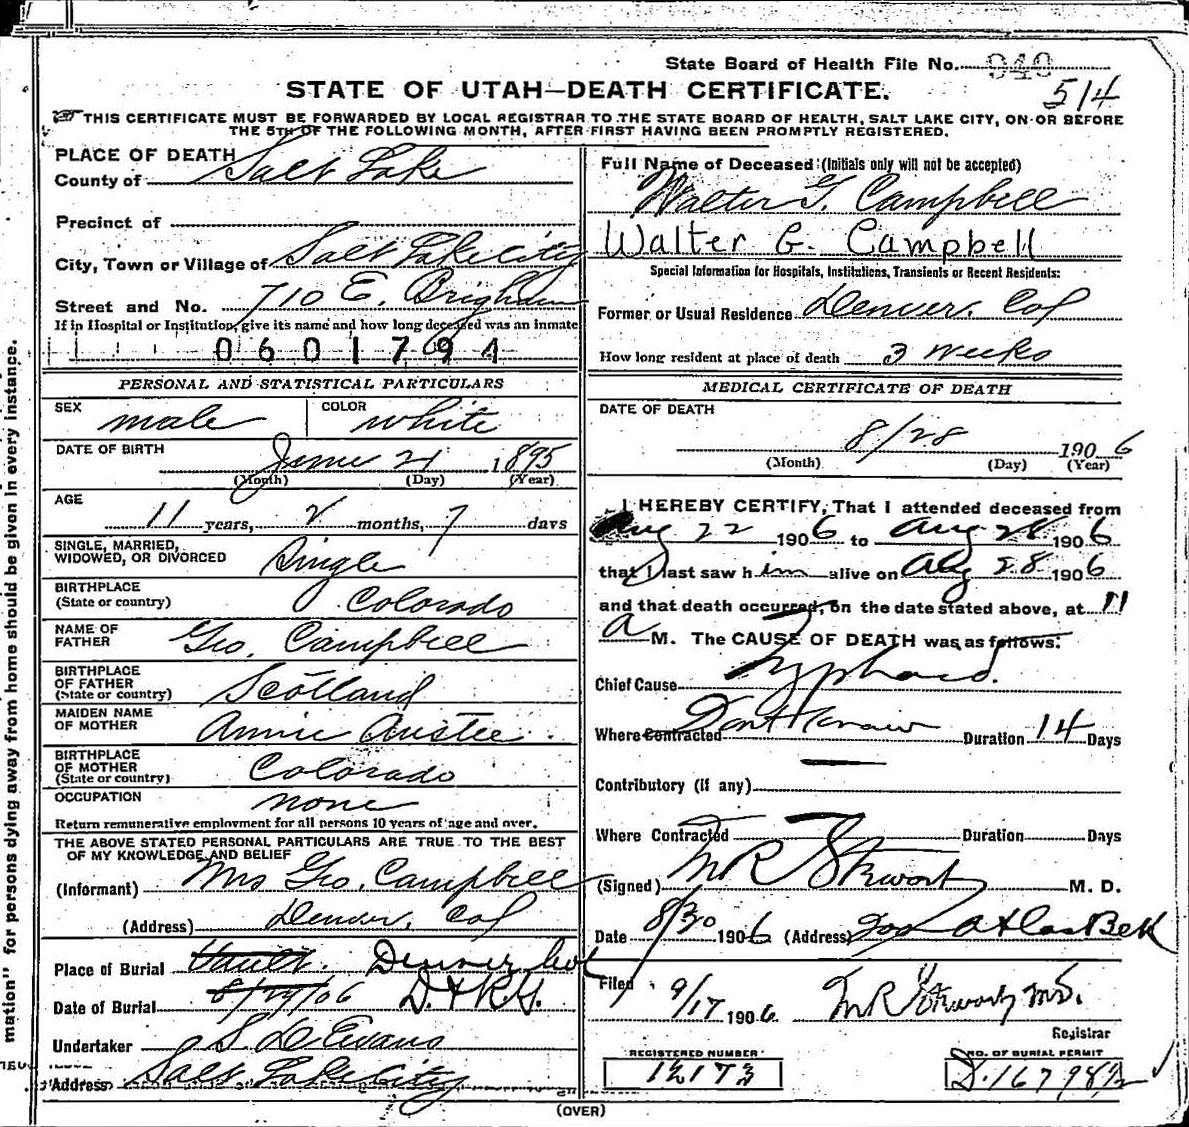 State Board of Health File No. 940
STATE OF UTAH—DEATH CERTIFICATE.
514
THIS CERTIFICATE MUST BE FORWARDED BY LOCAL REGISTRAR TO THE STATE BOARD OF HEALTH, SALT LAKE CITY, ON OR BEFORE
THE 5TH OF THE FOLLOWING MONTH, AFTER FIRST HAVING BEEN PROMPTLY REGISTERED.
PLACE OF DEATH
County of Salt Lake
Precinct of
City, Town or Village of Salt Lake City
Street and No. 710 E. Brigham
If in Hospital or Institution, give its name and how long deceased was an inmate
0601794
PERSONAL AND STATISTICAL PARTICULARS
SEX male COLOR white
DATE OF BIRTH June 21 1895
(Month) (Day) (Year)
AGE 11 years, 2 months, 7 days
SINGLE, MARRIED,
WIDOWED, OR DIVORCED Single
BIRTHPLACE
(State or country) Colorado
NAME OF
FATHER Geo. Campbell
BIRTHPLACE
OF FATHER
(State or country) Scotland
MAIDEN NAME
OF MOTHER Annie
BIRTHPLACE
OF MOTHER
(State or country) Colorado
OCCUPATION none
Return remunerative employment for all persons 10 years of age and over.
THE ABOVE STATED PERSONAL PARTICULARS ARE TRUE TO THE BEST
OF MY KNOWLEDGE AND BELIEF
(Informant) Mrs Geo. Campbell
(Address) Denver, Col
Place of Burial Vault. Denver Col
Date of Burial 8/29/06 D. & R.G.
Undertaker S. D. Evans
Address Salt Lake City
Full Name of Deceased (Initials only will not be accepted)
Walter G. Campbell
Walter G. Campbell
Special Information for Hospitals, Institutions, Transients or Recent Residents:
Former or Usual Residence Denver, Col
How long resident at place of death 3 weeks
MEDICAL CERTIFICATE OF DEATH
DATE OF DEATH
8/28 1906
(Month) (Day) (Year)
I HEREBY CERTIFY, That I attended deceased from
Aug 22 1906 to Aug 28 1906
that I last saw him alive on Aug 28 1906
and that death occurred, on the date stated above, at 11
a M. The CAUSE OF DEATH was as follows:
Chief Cause Typhoid.
Where Contracted Dont Know Duration 14 Days
Contributory (if any)
Where Contracted Duration Days
(Signed) M R Stewart M. D.
Date 8/30 1906 (Address) Atlas Blk
Filed 9/17 1906 M R Stewart M.D.
Registrar
REGISTERED NUMBER
12173
NO. OF BURIAL PERMIT
D. 16798½
(OVER)
mation" for persons dying away from home should be given in every instance.